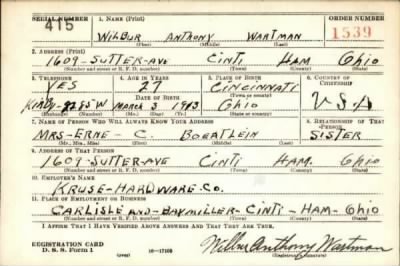 SERIAL NUMBER 1. NAME (Print) ORDER NUMBER
415 WILBUR ANTHONY WARTMAN 1539
(First) (Middle) (Last)
2. ADDRESS (Print)
1609-SUTTER-AVE CINTI HAM OHIO
(Number and street or R. F. D. number) (Town) (County) (State)
3. TELEPHONE 4. AGE IN YEARS 5. PLACE OF BIRTH 6. COUNTRY OF CITIZENSHIP
YES 27 CINCINNATI
DATE OF BIRTH (Town or county)
KIRBY- MARCH 3 1913 OHIO U.S.A
(Exchange) (Number) (Mo.) (Day) (Yr.) (State or country)
7. NAME OF PERSON WHO WILL ALWAYS KNOW YOUR ADDRESS 8. RELATIONSHIP OF THAT PERSON
MRS-ERNE- C. BOERTLEIN SISTER
(Mr., Mrs., Miss) (First) (Middle) (Last)
9. ADDRESS OF THAT PERSON
1609-SUTTER-AVE CINTI HAM. OHIO
(Number and street or R. F. D. number) (Town) (County) (State)
10. EMPLOYER'S NAME
KRUSE-HARDWARE-Co.
11. PLACE OF EMPLOYMENT OR BUSINESS
CARLISLE AND-BAYMILLER-CINTI-HAM-OHIO
(Number and street or R. F. D. number) (Town) (County) (State)
I AFFIRM THAT I HAVE VERIFIED ABOVE ANSWERS AND THAT THEY ARE TRUE.
REGISTRATION CARD
D. S. S. Form 1 (over) 16-17105 Wilbur Anthony Wartman